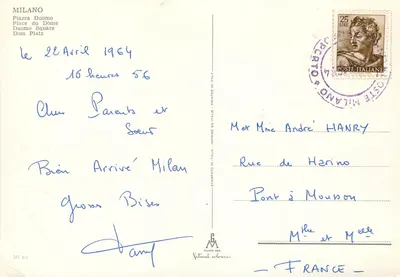 MILANO
Piazza Duomo
Place du Dôme
Duomo Square
Dom Platz
le 22 Avril 1964
10 heures 56
Chers Parents et
Sœur
Bien Arrivé Milan
Grosses Bises
25
POSTE ITALIANE
POSTE MILANO
M et Mme André HANRY
Rue de
Pont à Mousson
Mthe et Melle
- FRANCE -